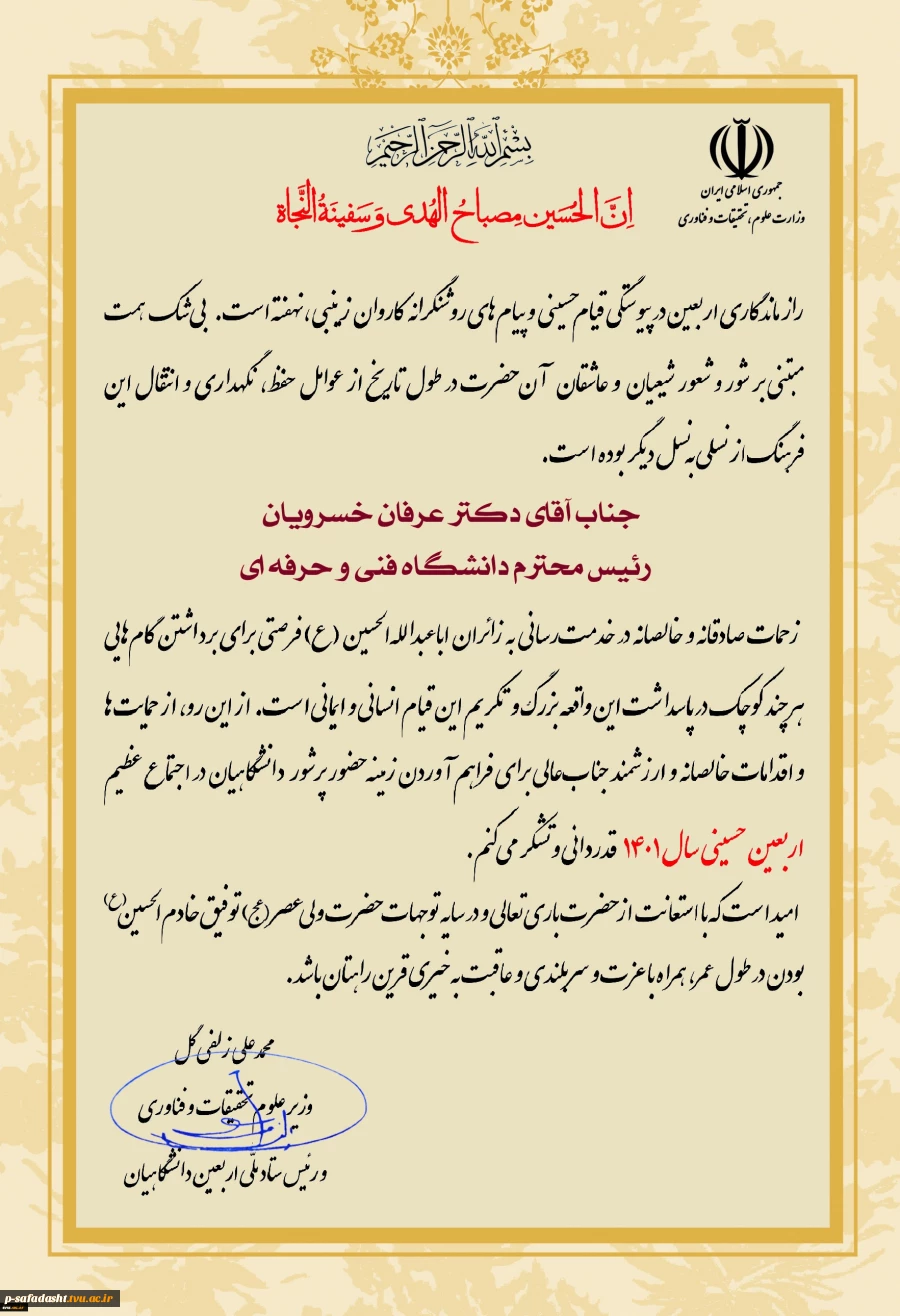 بسم الله الرحمن الرحیم
جمهوری اسلامی ایران
وزارت علوم، تحقیقات و فناوری
اِنَّ الحُسَین مِصباحُ الهُدی وَ سَفینَةُ النَّجاة
راز ماندگاری اربعین در پیوستگی قیام حسینی و پیام های روشنگرانه کاروان زینبی، نهفته است. بی شک همت
مبتنی بر شور و شعور شیعیان و عاشقان آن حضرت در طول تاریخ از عوامل حفظ، نگهداری و انتقال این
فرهنگ از نسلی به نسل دیگر بوده است.
جناب آقای دکتر عرفان خسرویان
رئیس محترم دانشگاه فنی و حرفه ای
زحمات صادقانه و خالصانه در خدمت رسانی به زائران اباعبدالله الحسین (ع) فرصتی برای برداشتن گام هایی
هر چند کوچک در پاسداشت این واقعه بزرگ و تکریم این قیام انسانی و ایمانی است. از این رو، از حمایت ها
و اقدامات خالصانه و ارزشمند جناب عالی برای فراهم آوردن زمینه حضور پرشور دانشگاهیان در اجتماع عظیم
اربعین حسینی سال ۱۴۰۱ قدردانی و تشکر می کنم.
امید است که با استعانت از حضرت باری تعالی و در سایه توجهات حضرت ولی عصر (عج) توفیق خادم الحسین (ع)
بودن در طول عمر، همراه با عزت و سربلندی و عاقبت به خیری قرین راهتان باشد.
محمدعلی زلفی گل
وزیر علوم تحقیقات و فناوری
و رئیس ستاد ملّی اربعین دانشگاهیان
p-safadasht.tvu.ac.ir